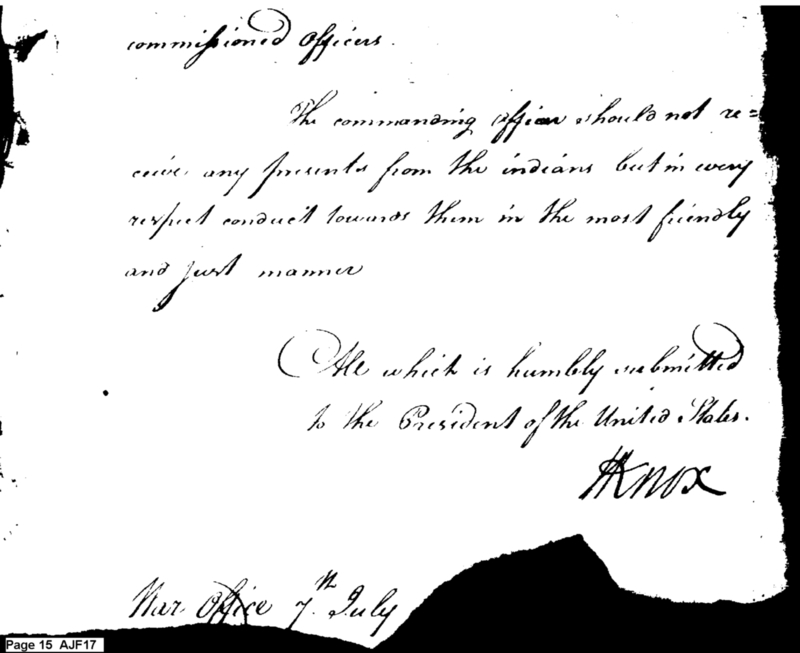 commissioned officers.
The commanding officer should not re=
ceive any presents from the indians but in every
respect conduct towards them in the most friendly
and just manner
All which is humbly submitted
to the President of the United States.
HKnox
War Office 7th July
Page 15 AJF17